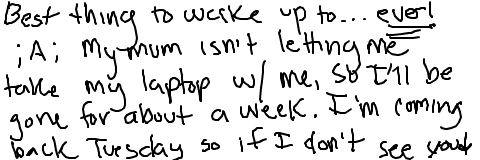 Best thing to wake up to... ever!
;A; My mum isn't letting me
take my laptop w/ me, so I'll be
gone for about a week. I'm coming
back Tuesday so if I don't see